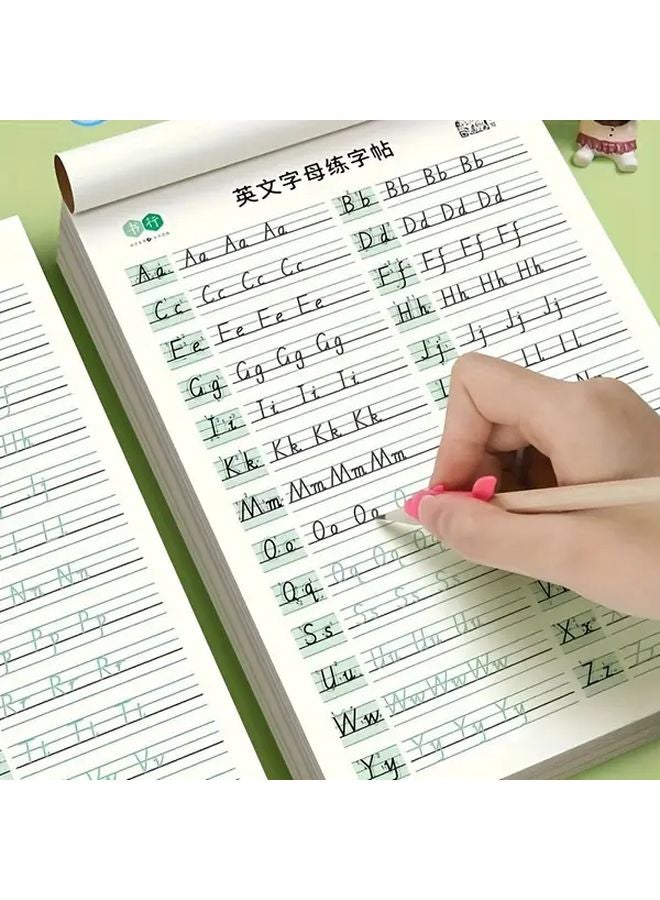 英文字母练字帖
书行
Aa Aa Aa Aa
Bb Bb Bb Bb
Cc Cc Cc Cc
Dd Dd Dd Dd
Ee Ee Ee Ee
Ff Ff Ff Ff
Gg Gg Gg Gg
Hh Hh Hh Hh
Ii Ii Ii Ii
Jj Jj Jj Jj
Kk Kk Kk Kk
Ll Ll
Mm Mm Mm Mm
Oo Oo Oo
Qq Qq Qq Qq
Ss Ss Ss Ss
Uu Uu Uu Uu
Ww Ww Ww Ww
Xx
Yy Yy Yy Yy Yy
Zz
Hh
Jj
Ll Ll
Nn Nn
Pp Pp Pp
Rr Rr Rr
Tt Tt Tt
Vv Vv